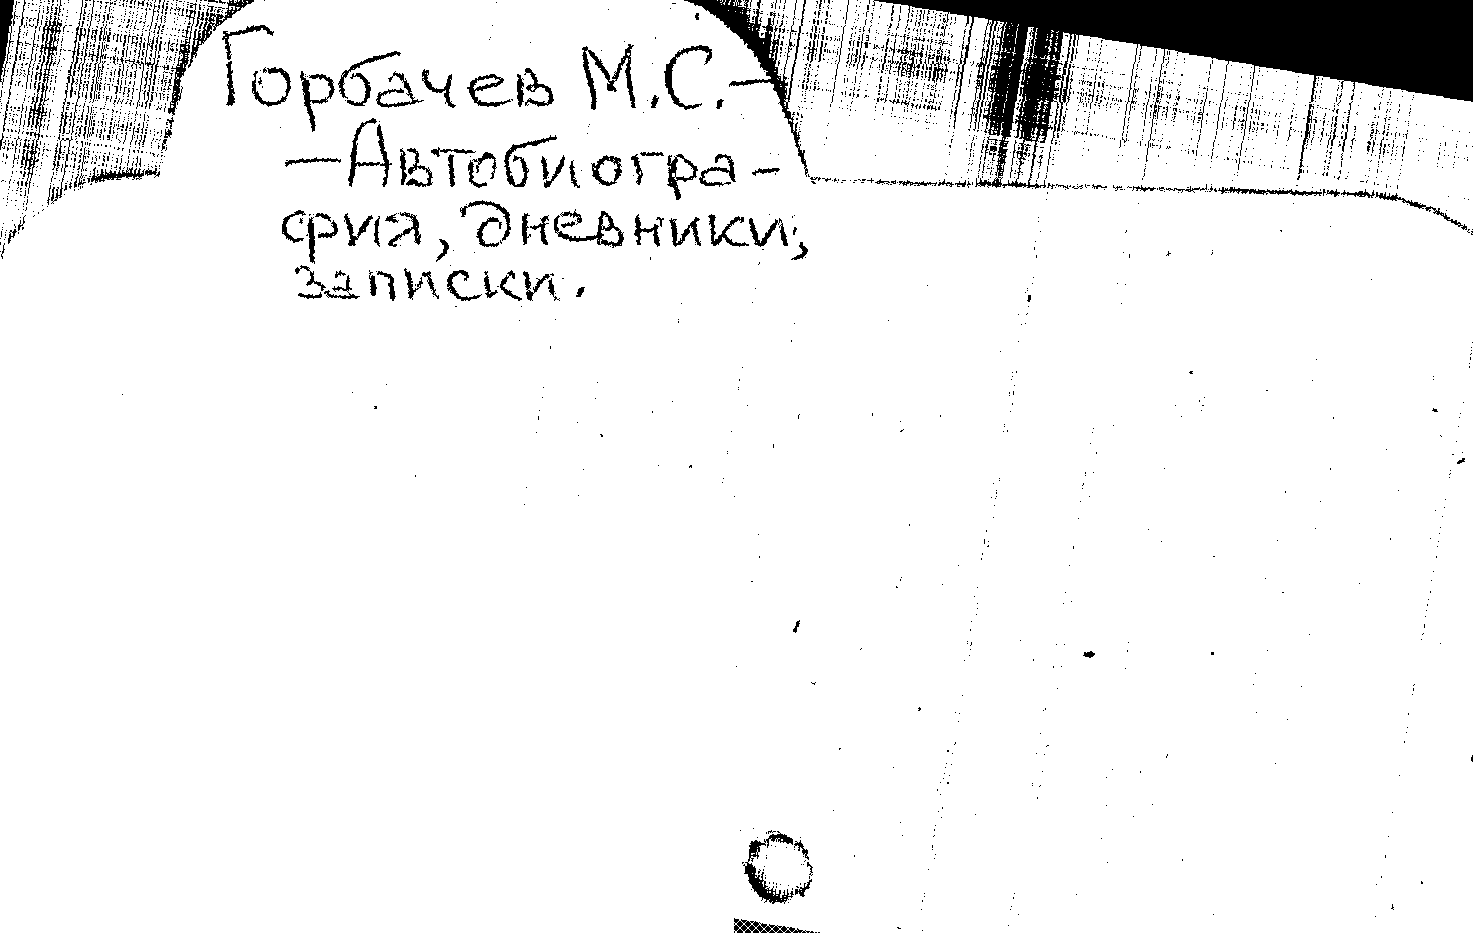 Горбачев М.С.–
–Автобиогра-
фия, дневники,
записки.